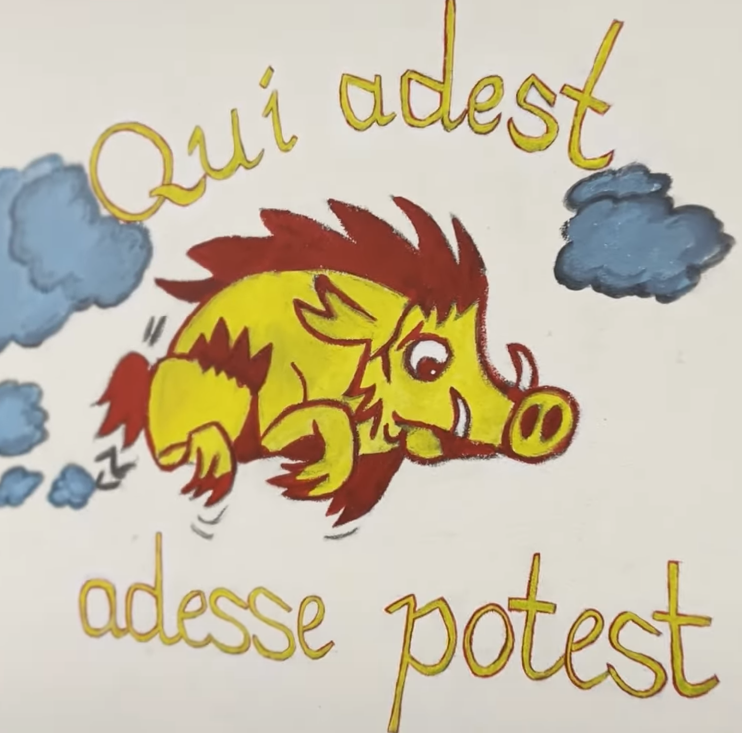 Qui adest
adesse potest